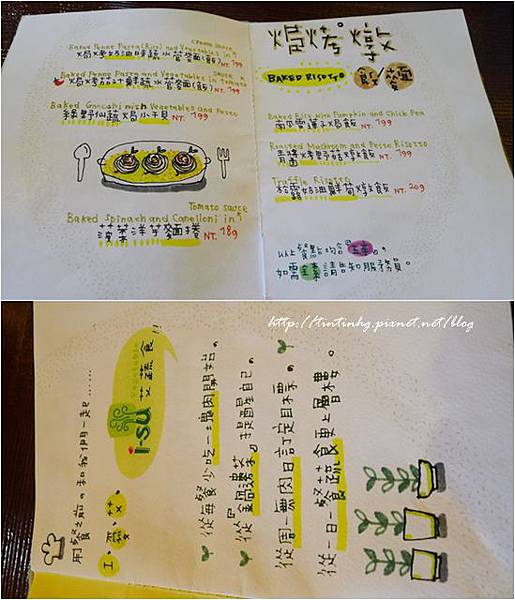 (Cream sauce
Baked Penne Pasta(Rice) and Vegetables in
焗烤奶油時蔬水管麵(飯) NT. 199
Baked Penne Pasta and Vegetables in Tomato sauce
焗烤茄汁鮮蔬水管麵(飯) NT. 199
Baked Gnocchi with Vegetables and Pesto
綠野仙蔬焗小貝 NT. 199
Tomato sauce
Baked Spinach and Canelloni in
菠菜洋芋麵捲 NT. 189
焗烤 燉
BAKED RISOTTO
飯/麵
Baked Rice with Pumpkin and Chick Pea
南瓜雪蓮子焗飯 NT. 199
Roasted Mushroom and Pesto Risotto
青醬烤野菇燉飯 NT. 199
Truffle Risotto
松露奶油鮮筍燉飯 NT. 209
以上餐點均含
如需全素請告知服務員。
http://tintinhg.pixnet.net/blog
用餐之前。和我們一起......
Vegetable
i-su
艾蔬食
從每餐少吃一塊肉開始。
從
提醒自己。
從周一無肉日訂定目標。
從一日一餐蔬食更上層樓。